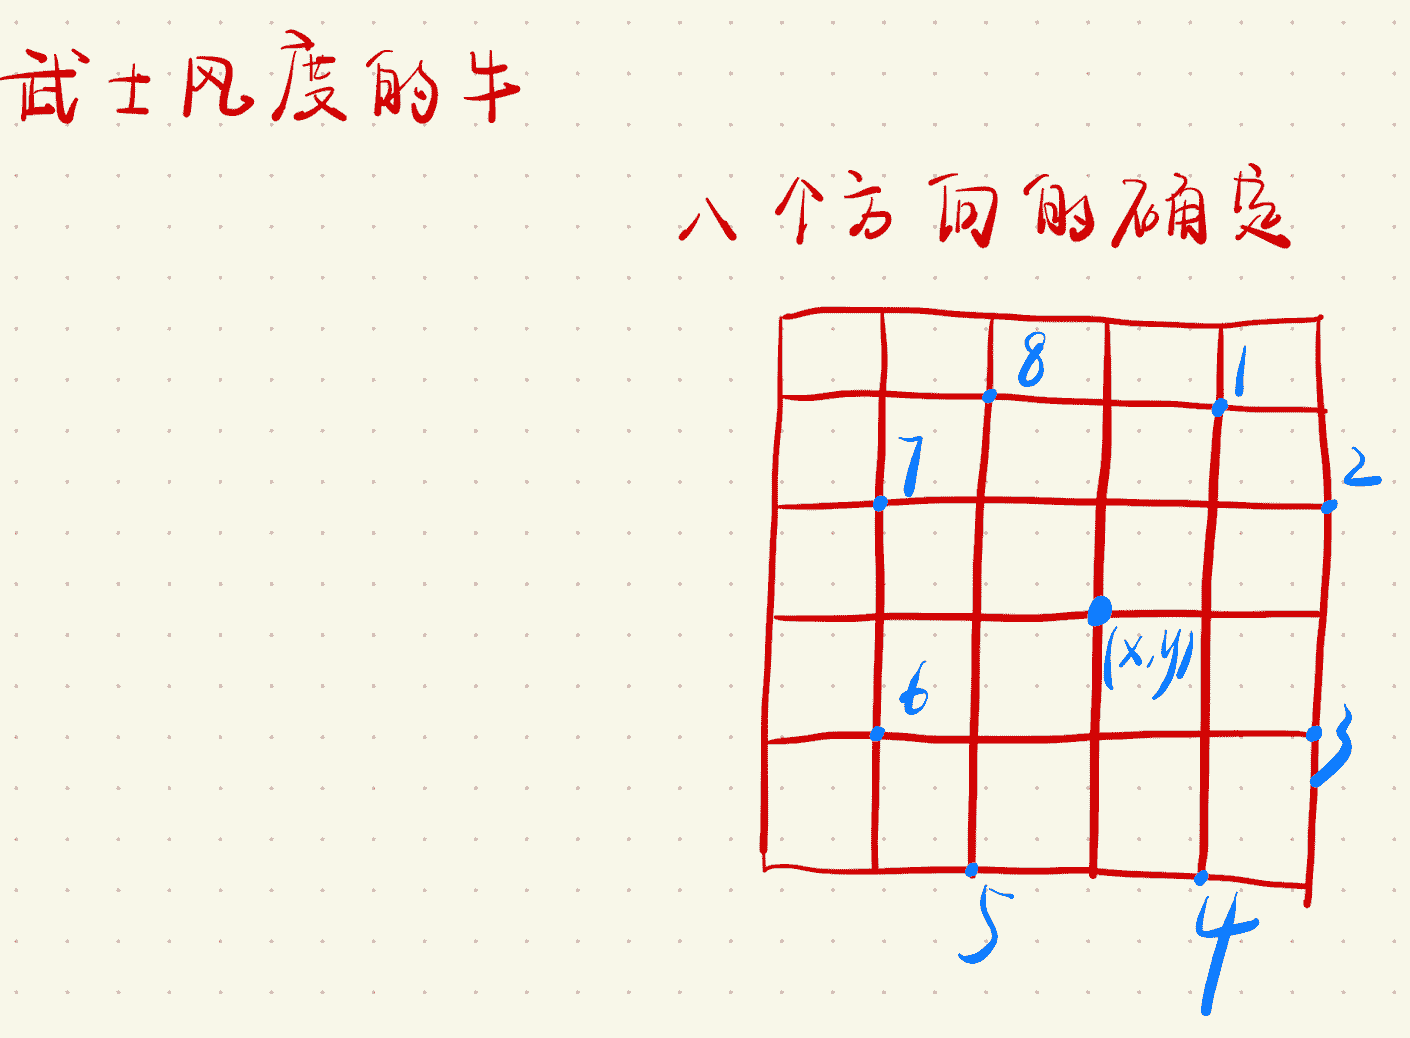 武士风度的牛
八个方向的确定
8 1
7 2
(x,y)
6 3
5 4